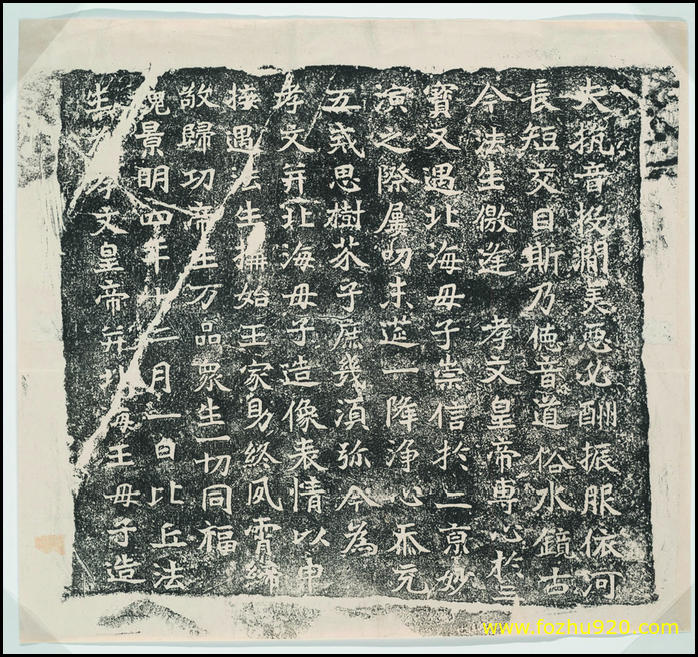 夫抗音投澗美惡必酬振服依河
長短交目斯乃德音道俗水鏡古
今法生儌逢 孝文皇帝專心於三
寶又遇北海母子崇信於二京妙
演之際屢叨末筵一降淨心忝充
五戒思樹芥子庶幾須彌今為
孝文并北海母子造像表情以申
接遇法生構始王家助終夙霄締
敬歸功帝王万品眾生一切同福
魏景明四年十二月一日比丘法
生為孝文皇帝并北海王母子造
www.fozhu920.com